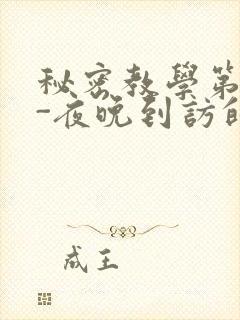 秘密教學第
-夜晚到訪的
成王